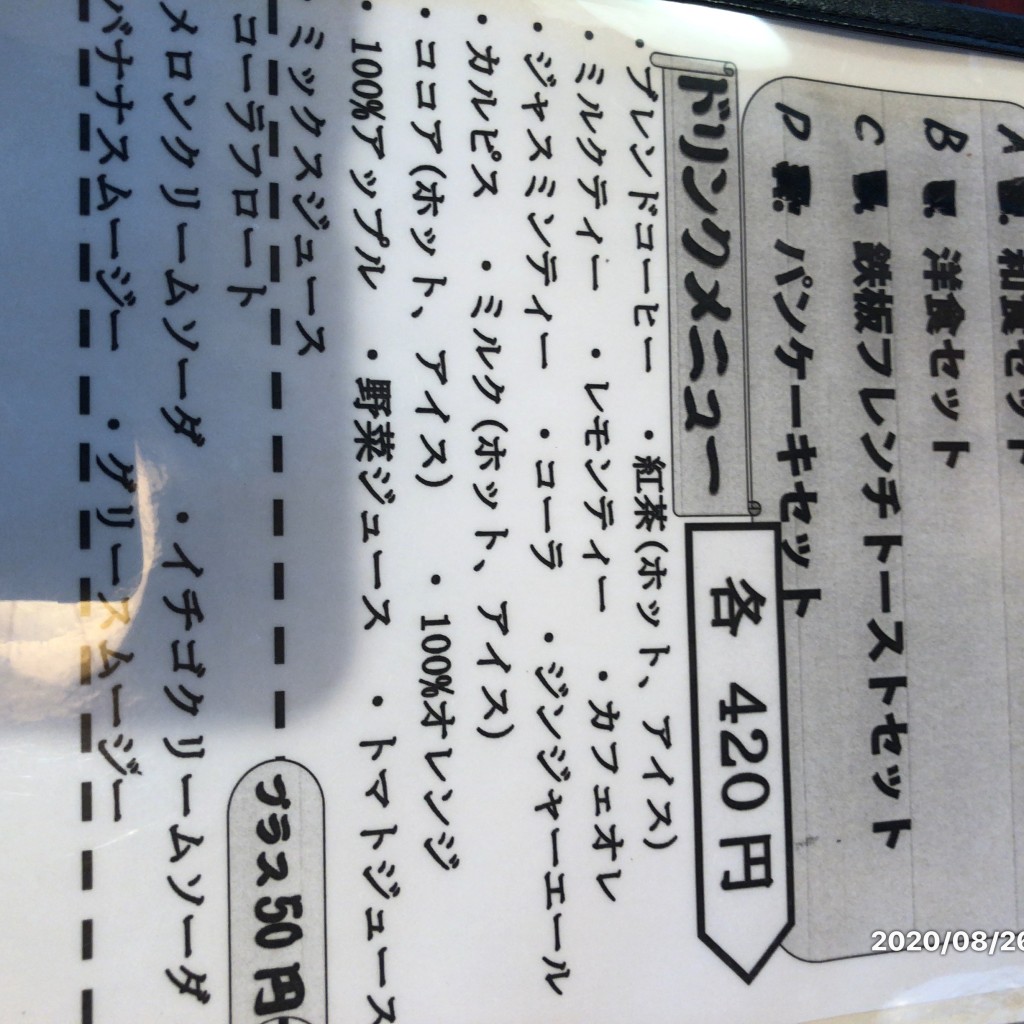 A 和食セット
B 洋食セット
C 鉄板フレンチトーストセット
D パンケーキセット
ドリンクメニュー 各 420 円
・ブレンドコーヒー ・紅茶(ホット、アイス)
・ミルクティー ・レモンティー ・カフェオレ
・ジャスミンティー ・コーラ ・ジンジャーエール
・カルピス ・ミルク(ホット、アイス)
・ココア(ホット、アイス) ・100%オレンジ
・100%アップル ・野菜ジュース ・トマトジュース
プラス50円
ミックスジュース
コーラフロート
メロンクリームソーダ ・イチゴクリームソーダ
バナナスムージー ・グリーンスムージー
2020/08/26